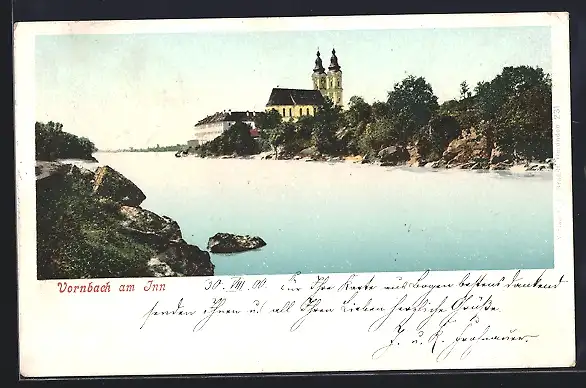 Vornbach am Inn
30. VIII. 00. Für Ihre Karte aus Bogen bestens dankend
senden Ihnen u. all Ihren Lieben herzliche Grüße.
J. u. K.